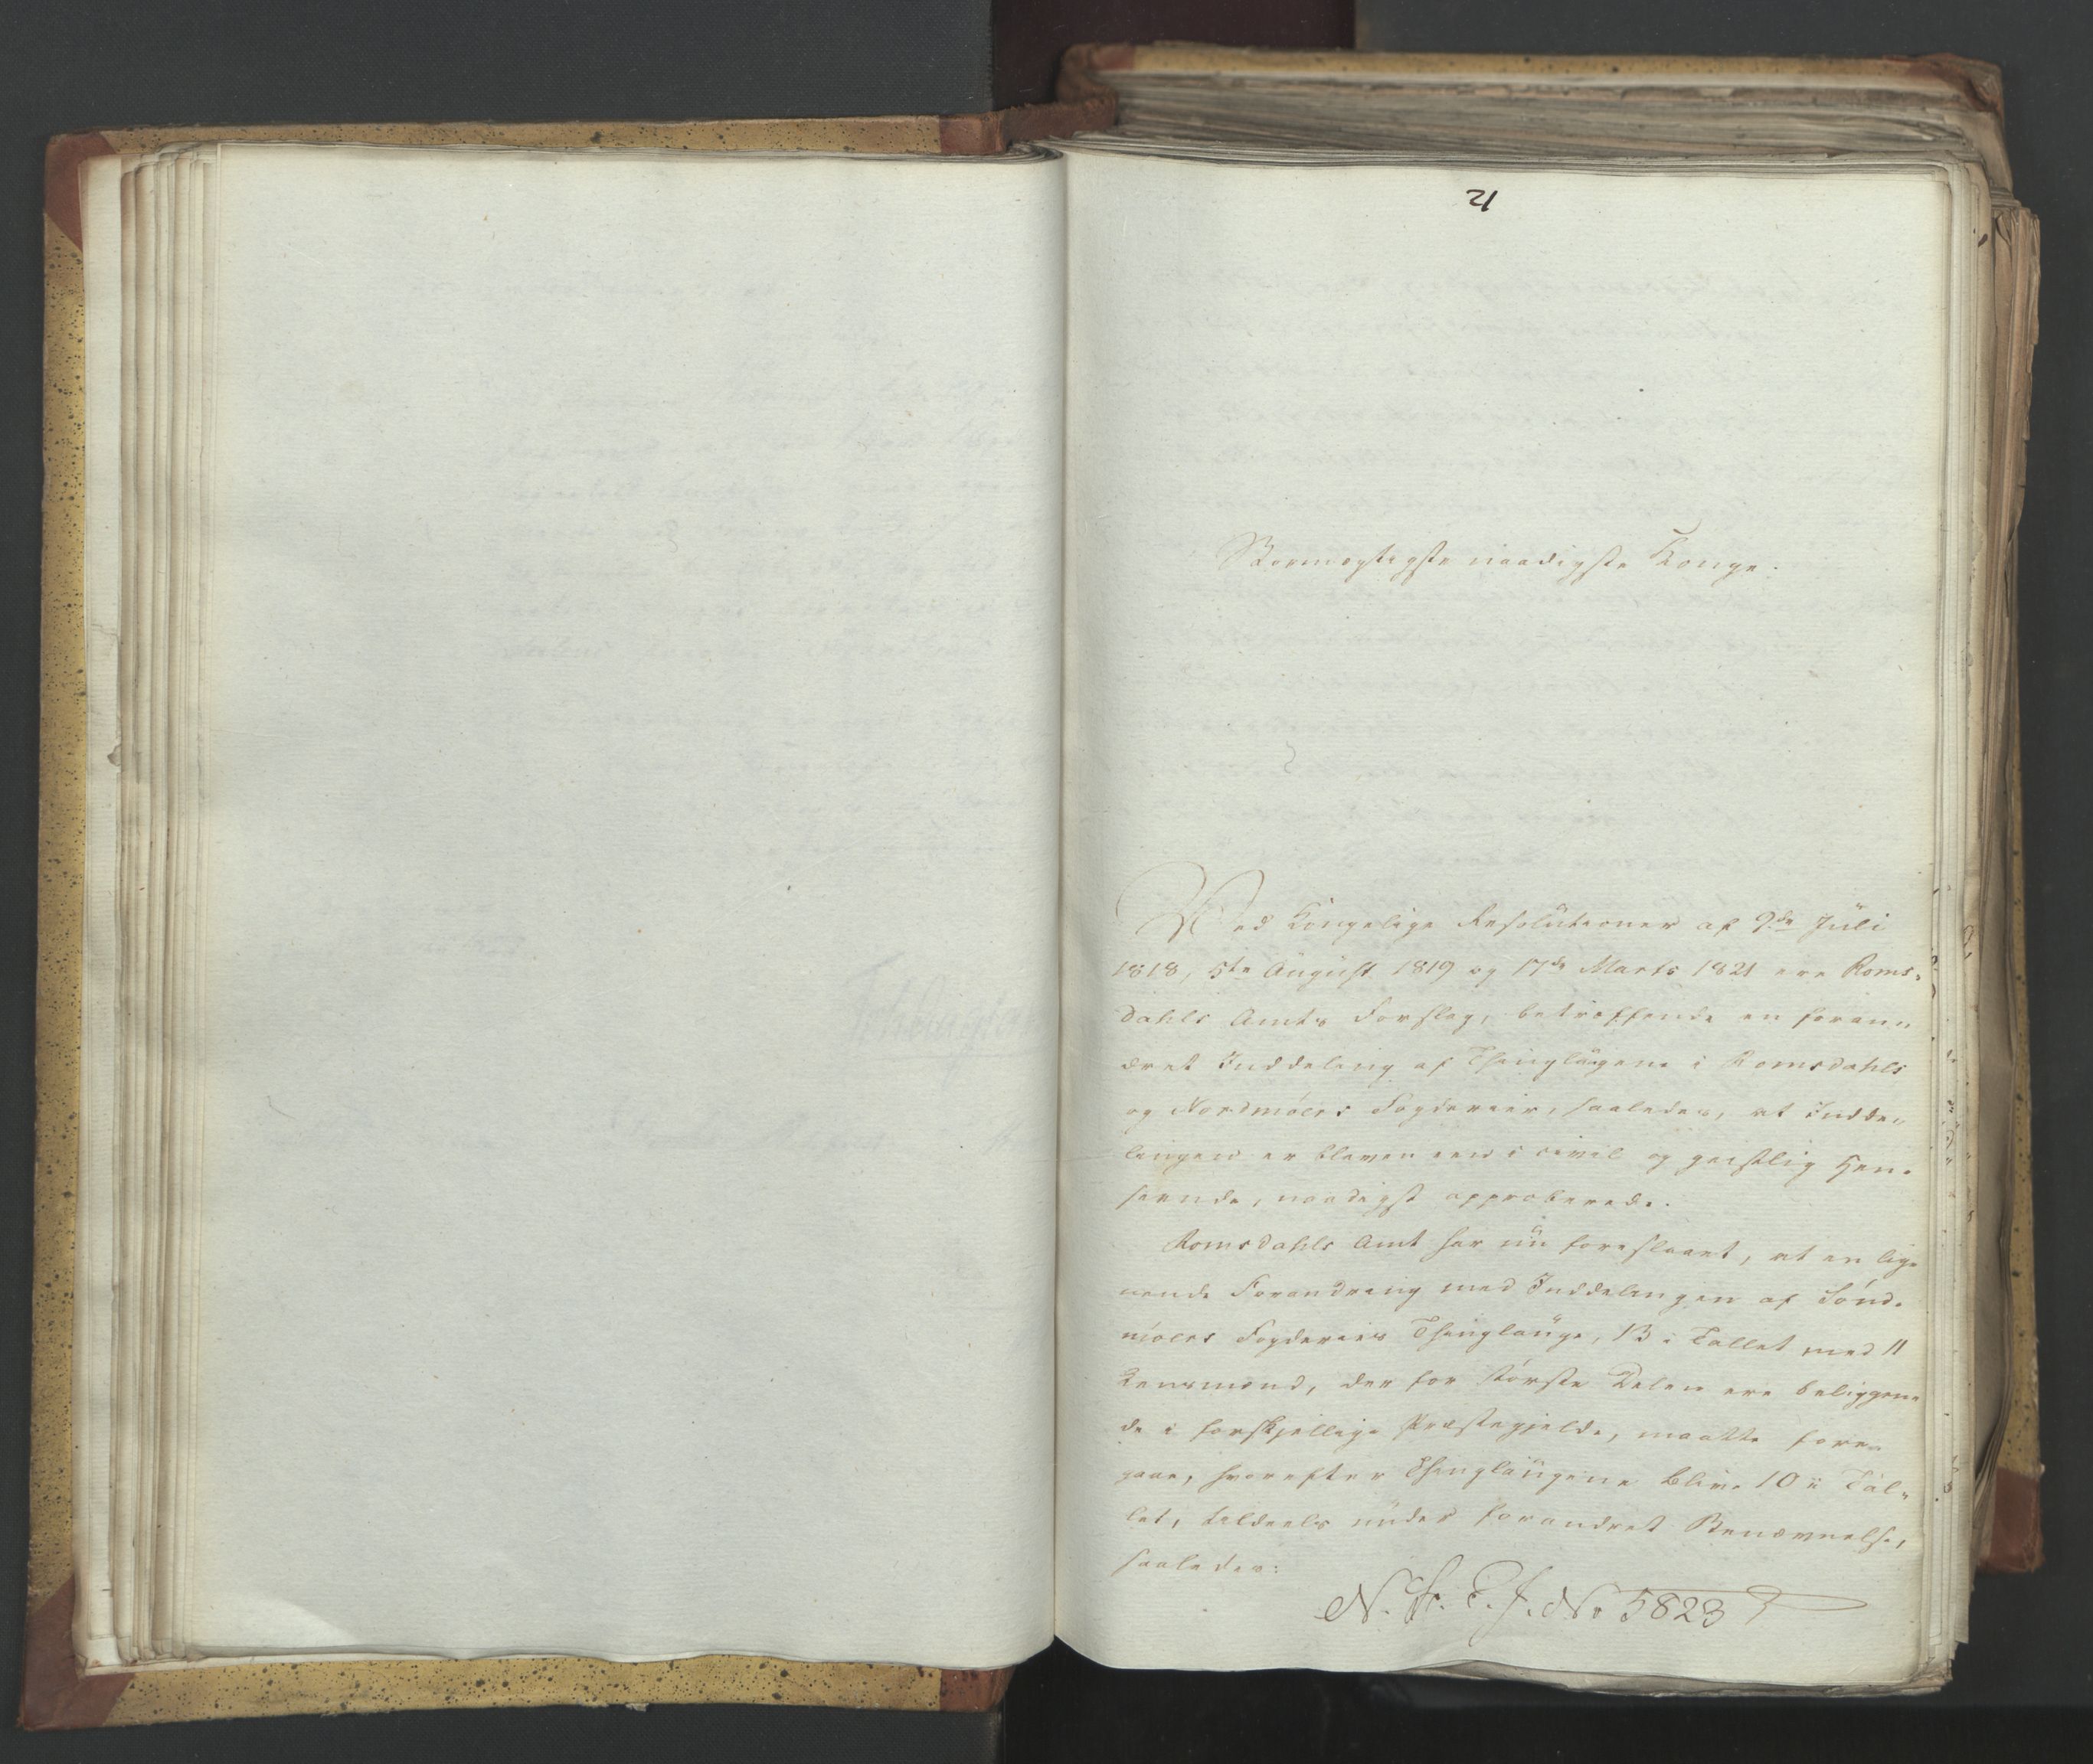 21
Stormægtigste naadigste Konge.
Ved Kongelige Resolutioner af 9de Juli
1818, 5te August 1819 og 17de Marts 1821 ere Roms-
dahls Amts Forslag, betræffende en foran-
dret Inddeling af Thinglaugene i Romsdahls
og Nordmøers Fogderier, saaledes, at Indde-
lingen er bleven een i civil og geistlig Hen-
seende, naadigst approberede.
Romsdahls Amt har nu foreslaaet, at en lig-
nende Forandring med Inddelingen af Sønd-
møers Fogderies Thinglauge, 13 i Tallet med 11
Lensmænd, der for største Delen ere beliggen-
de i forskjellige Præstegjelde, maatte fore-
gaae, hvorefter Thinglaugene blive 10 i Tal-
let, tildeels under forandret Benævnelse,
saaledes:
N. St. E. J. No 5823